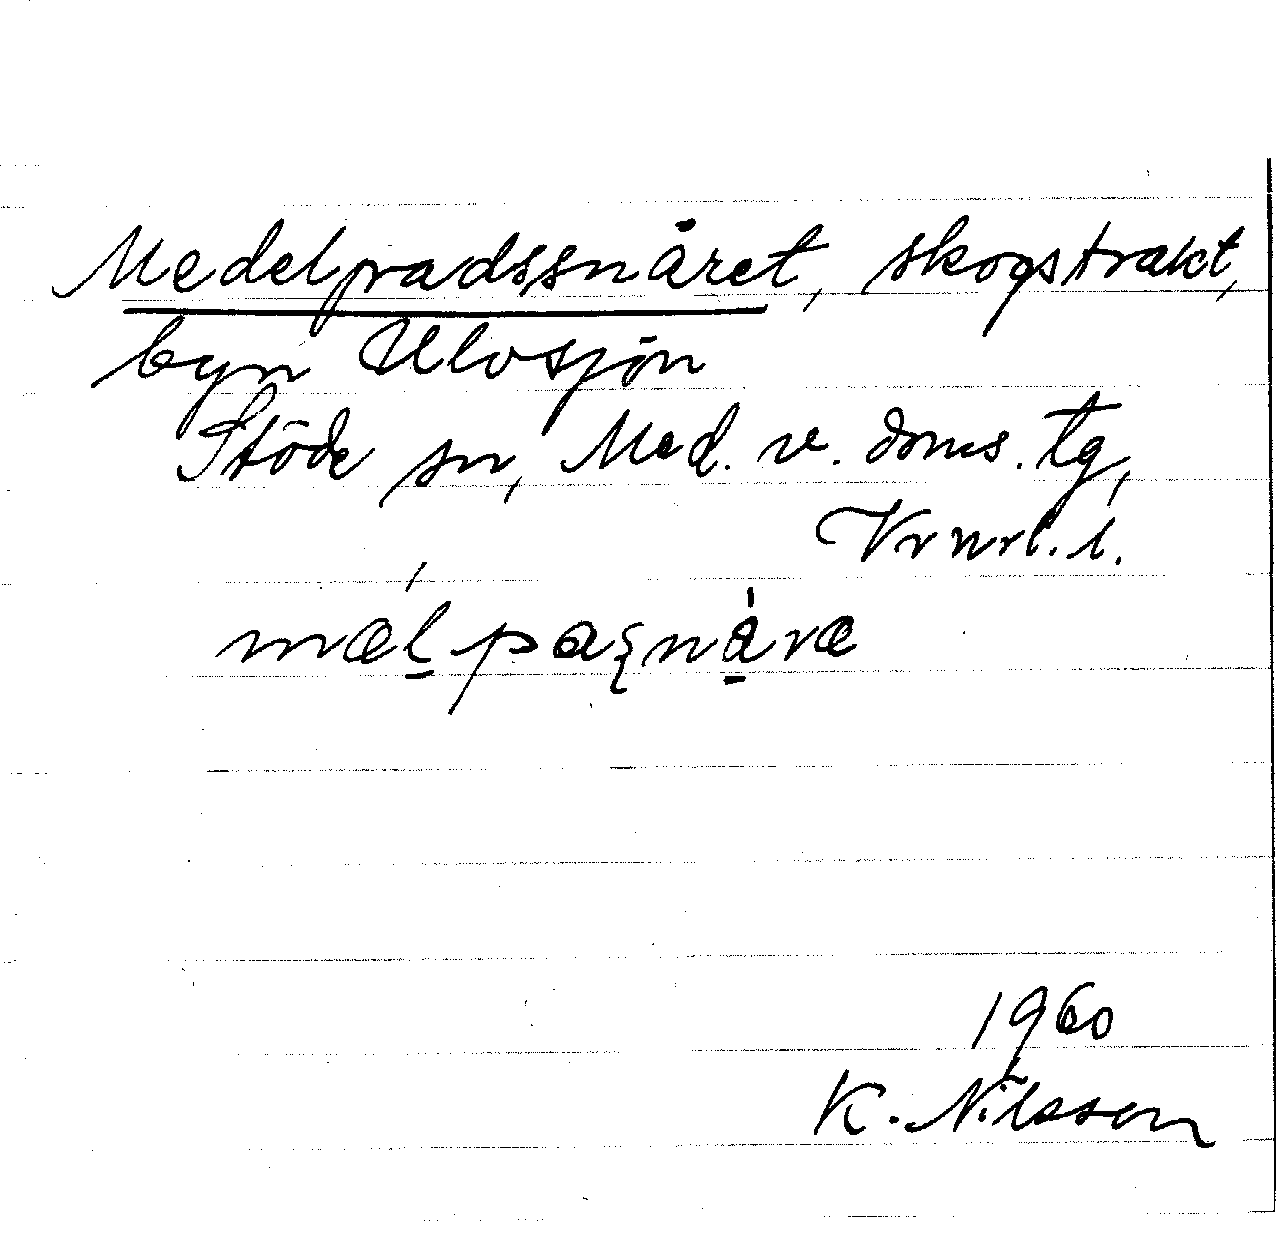 Medelpradssnåret, skogstrakt,
byn Ulvsjön
Stöde sn, Med. v. doms. tg,
Vrnrl. l.
mæl̠paʂnȧ̠ræ
1960
K. Nilsson